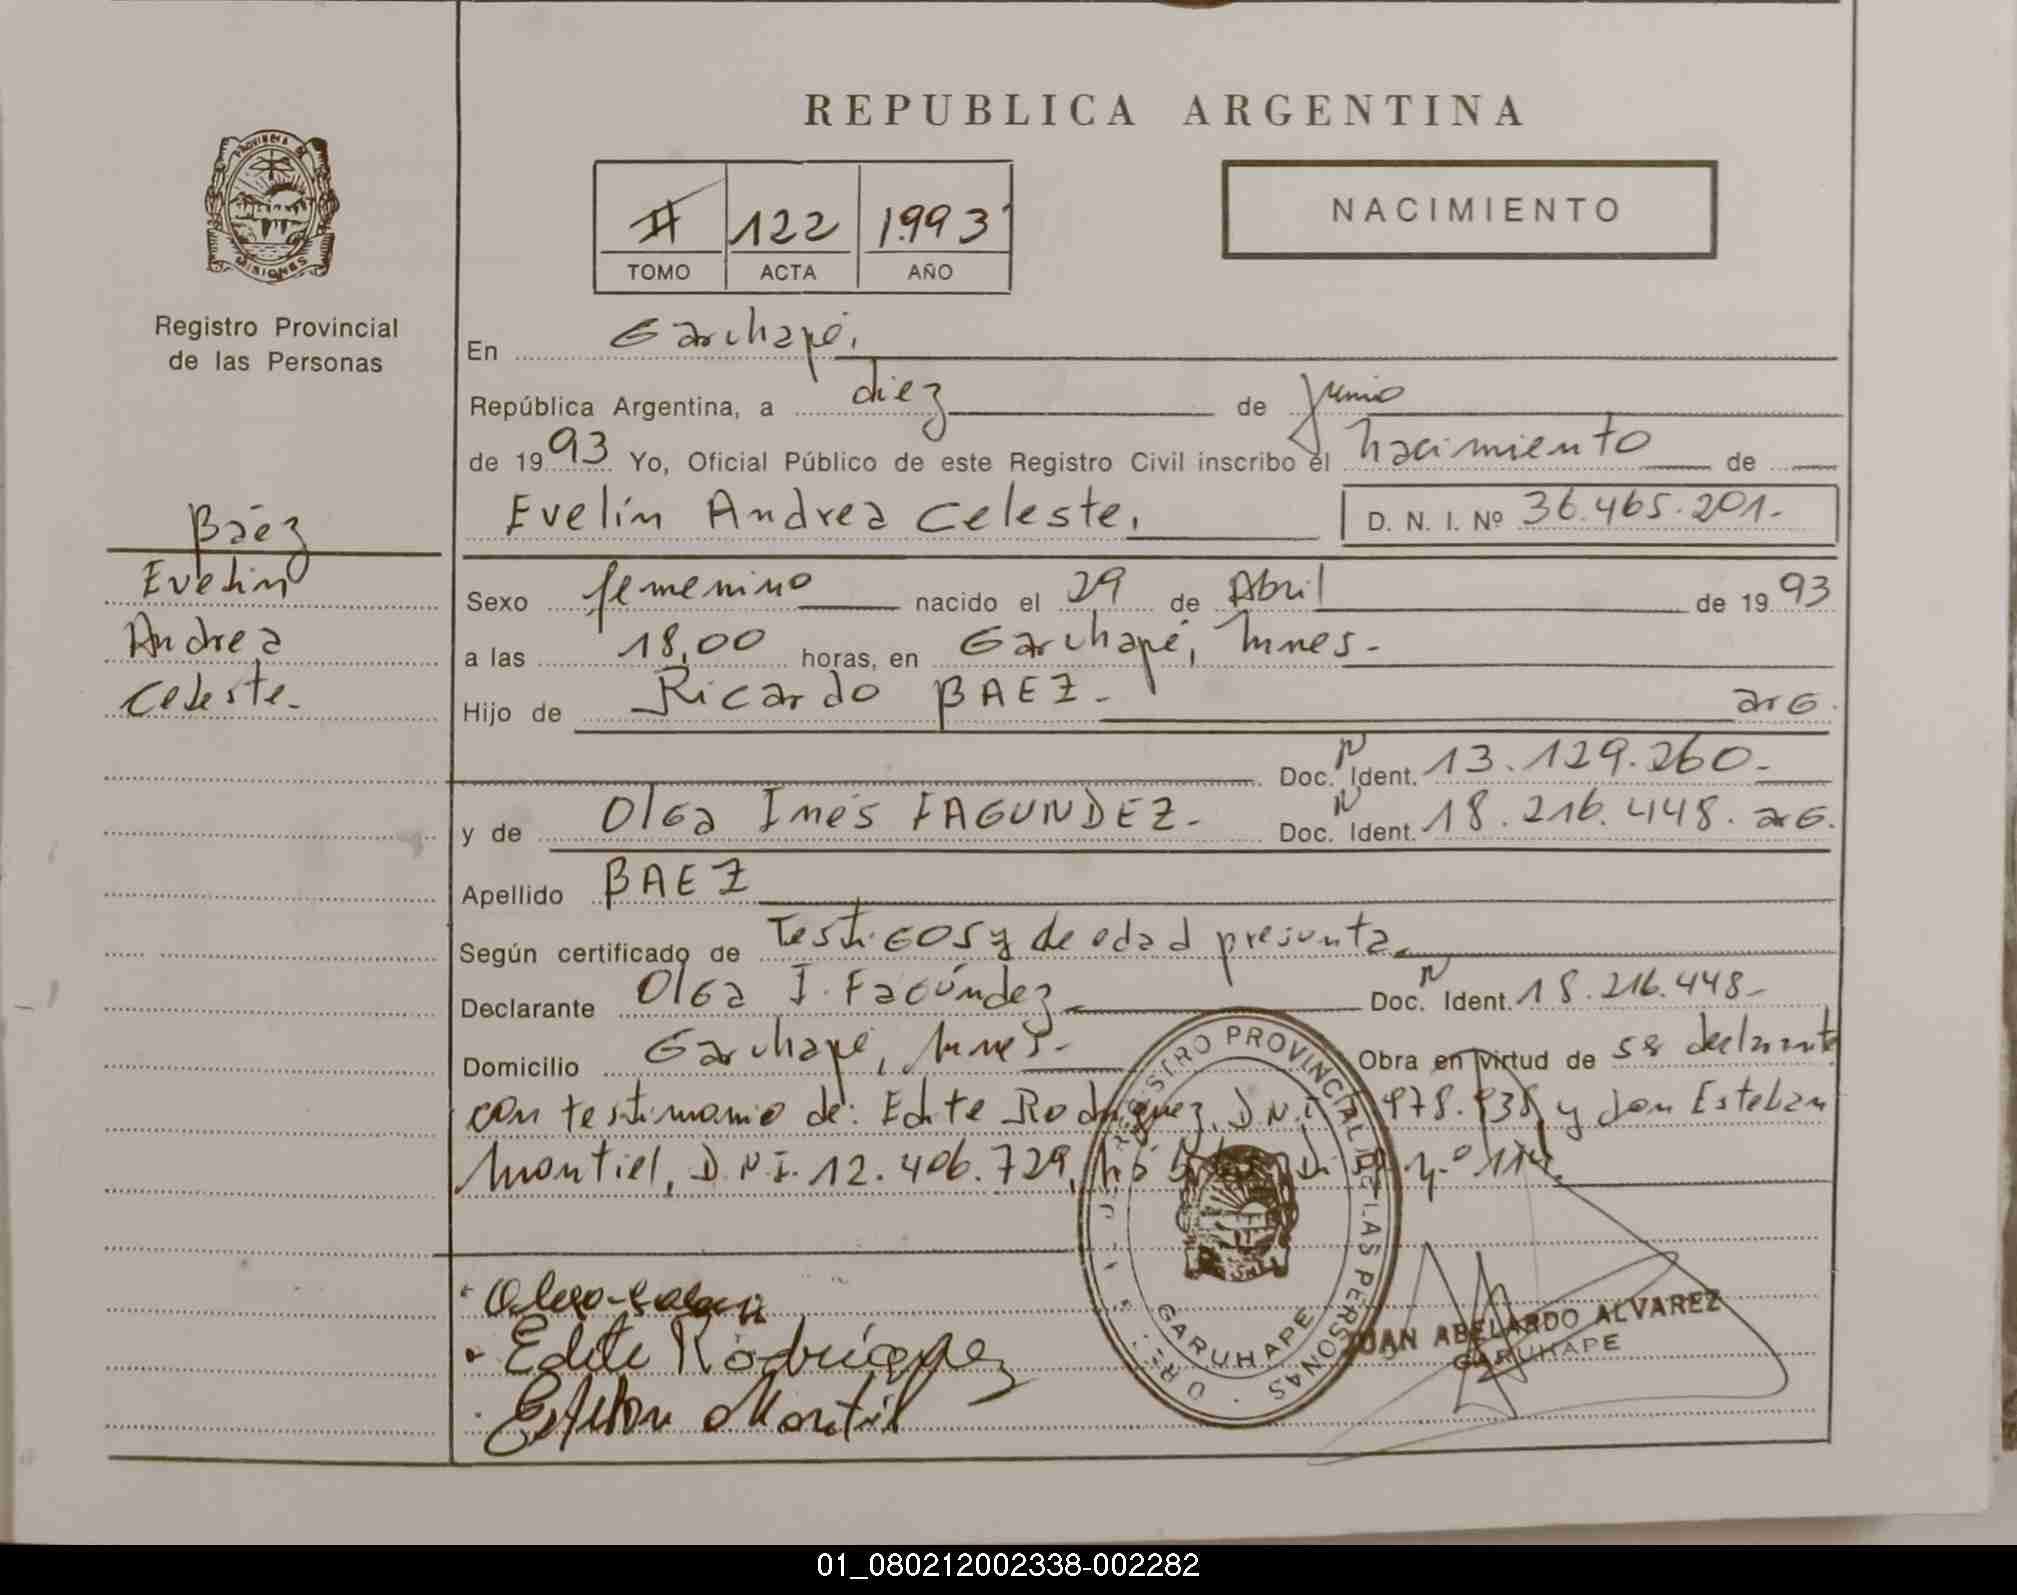 REPUBLICA ARGENTINA
PROVINCIA DE MISIONES
Registro Provincial
de las Personas
II 122 1993
TOMO ACTA AÑO
NACIMIENTO
En Garuhapé,
República Argentina, a diez de junio
de 1993 Yo, Oficial Público de este Registro Civil inscribo el nacimiento de
Evelin Andrea Celeste, D. N. I. Nº 36.465.201.-
Báez
Evelin
Andrea
Celeste.-
Sexo femenino nacido el 29 de Abril de 1993
a las 18,00 horas, en Garuhapé, Mnes.-
Hijo de Ricardo BAEZ.- arg.
Doc. N Ident. 13.129.260.-
y de Olga Inés FAGUNDEZ.- Doc. N Ident. 18.216.448. arg.
Apellido BAEZ
Según certificado de Testigos y de edad presunta.
Declarante Olga I. Fagúndez Doc. N Ident. 18.216.448.-
Domicilio Garuhapé, Mnes.- Obra en virtud de ser declarante
con testimonio de: Edite Rodriguez, D.N.I. y don Esteban
Montiel, D.N.I. 12.406.729,
Edite Rodríguez
Esteban Montiel
REGISTRO PROVINCIAL DE LAS PERSONAS
GARUHAPE
JUAN ABELARDO ALVAREZ
GARUHAPE
01_080212002338-002282